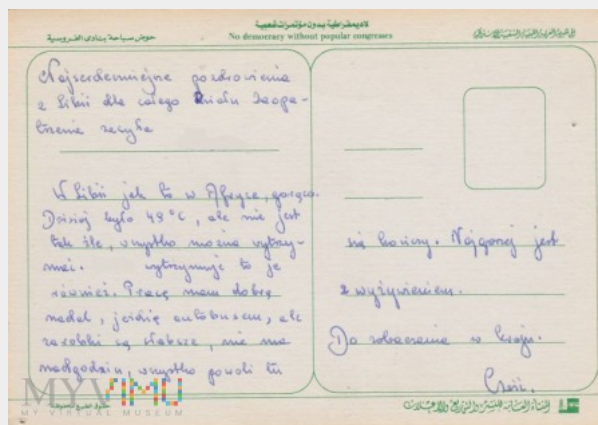 لاديمقراطية بدون مؤتمرات شعبية
No democracy without popular congresses
حوض سباحة بنادى الفروسية
Najserdeczniejsze pozdrowienia
z Libii dla całego działu Zaopa-
trzenia zesyła
W Libii jak to w Afryce, gorąco.
Dzisiaj było 49°C, ale nie jest
tak źle, wszystko można wytrzy-
mać. wytrzymuję to ja
również. Pracę mam dobrą
nadal, jeżdżę autobusem, ale
zarobki są słabsze, nie ma
nadgodzin, wszystko powoli tu
się kończy. Najgorzej jest
z wyżywieniem.
Do zobaczenia w kraju.
Cześć.
MYVIMU
MY VIRTUAL MUSEUM
المنشأة العامة للنشر والتوزيع والاعلان